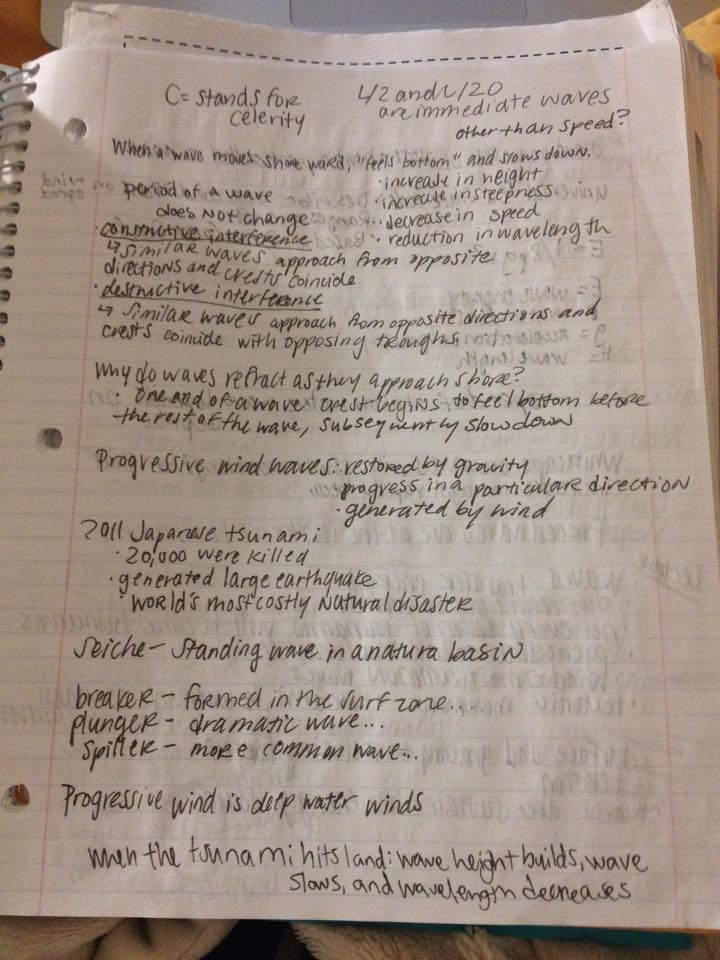 C= stands for
celerity
L/2 and L/20
are immediate waves
other than speed?
When a wave moves shore ward, "feels bottom" and slows down.
· increase in height
· increase in steepness
· decrease in speed
· reduction in wavelength
period of a wave
does not change
· constructive interference
↳ similar waves approach from opposite
directions and crests coincide
· destructive interference
↳ similar waves approach from opposite directions and
crests coincide with opposing troughs
Why do waves refract as they approach shore?
· one end of a wave crest begins to feel bottom before
the rest of the wave, subsequently slow down
Progressive wind waves: · restored by gravity
· progress in a particular direction
· generated by wind
2011 Japanese tsunami
· 20,000 were killed
· generated large earthquake
· World's most costly natural disaster
Seiche - Standing wave in a natura basin
breaker - formed in the surf zone...
plunger - dramatic wave...
spiller - more common wave...
Progressive wind is deep water winds
when the tsunami hits land: wave height builds, wave
slows, and wavelength decreases